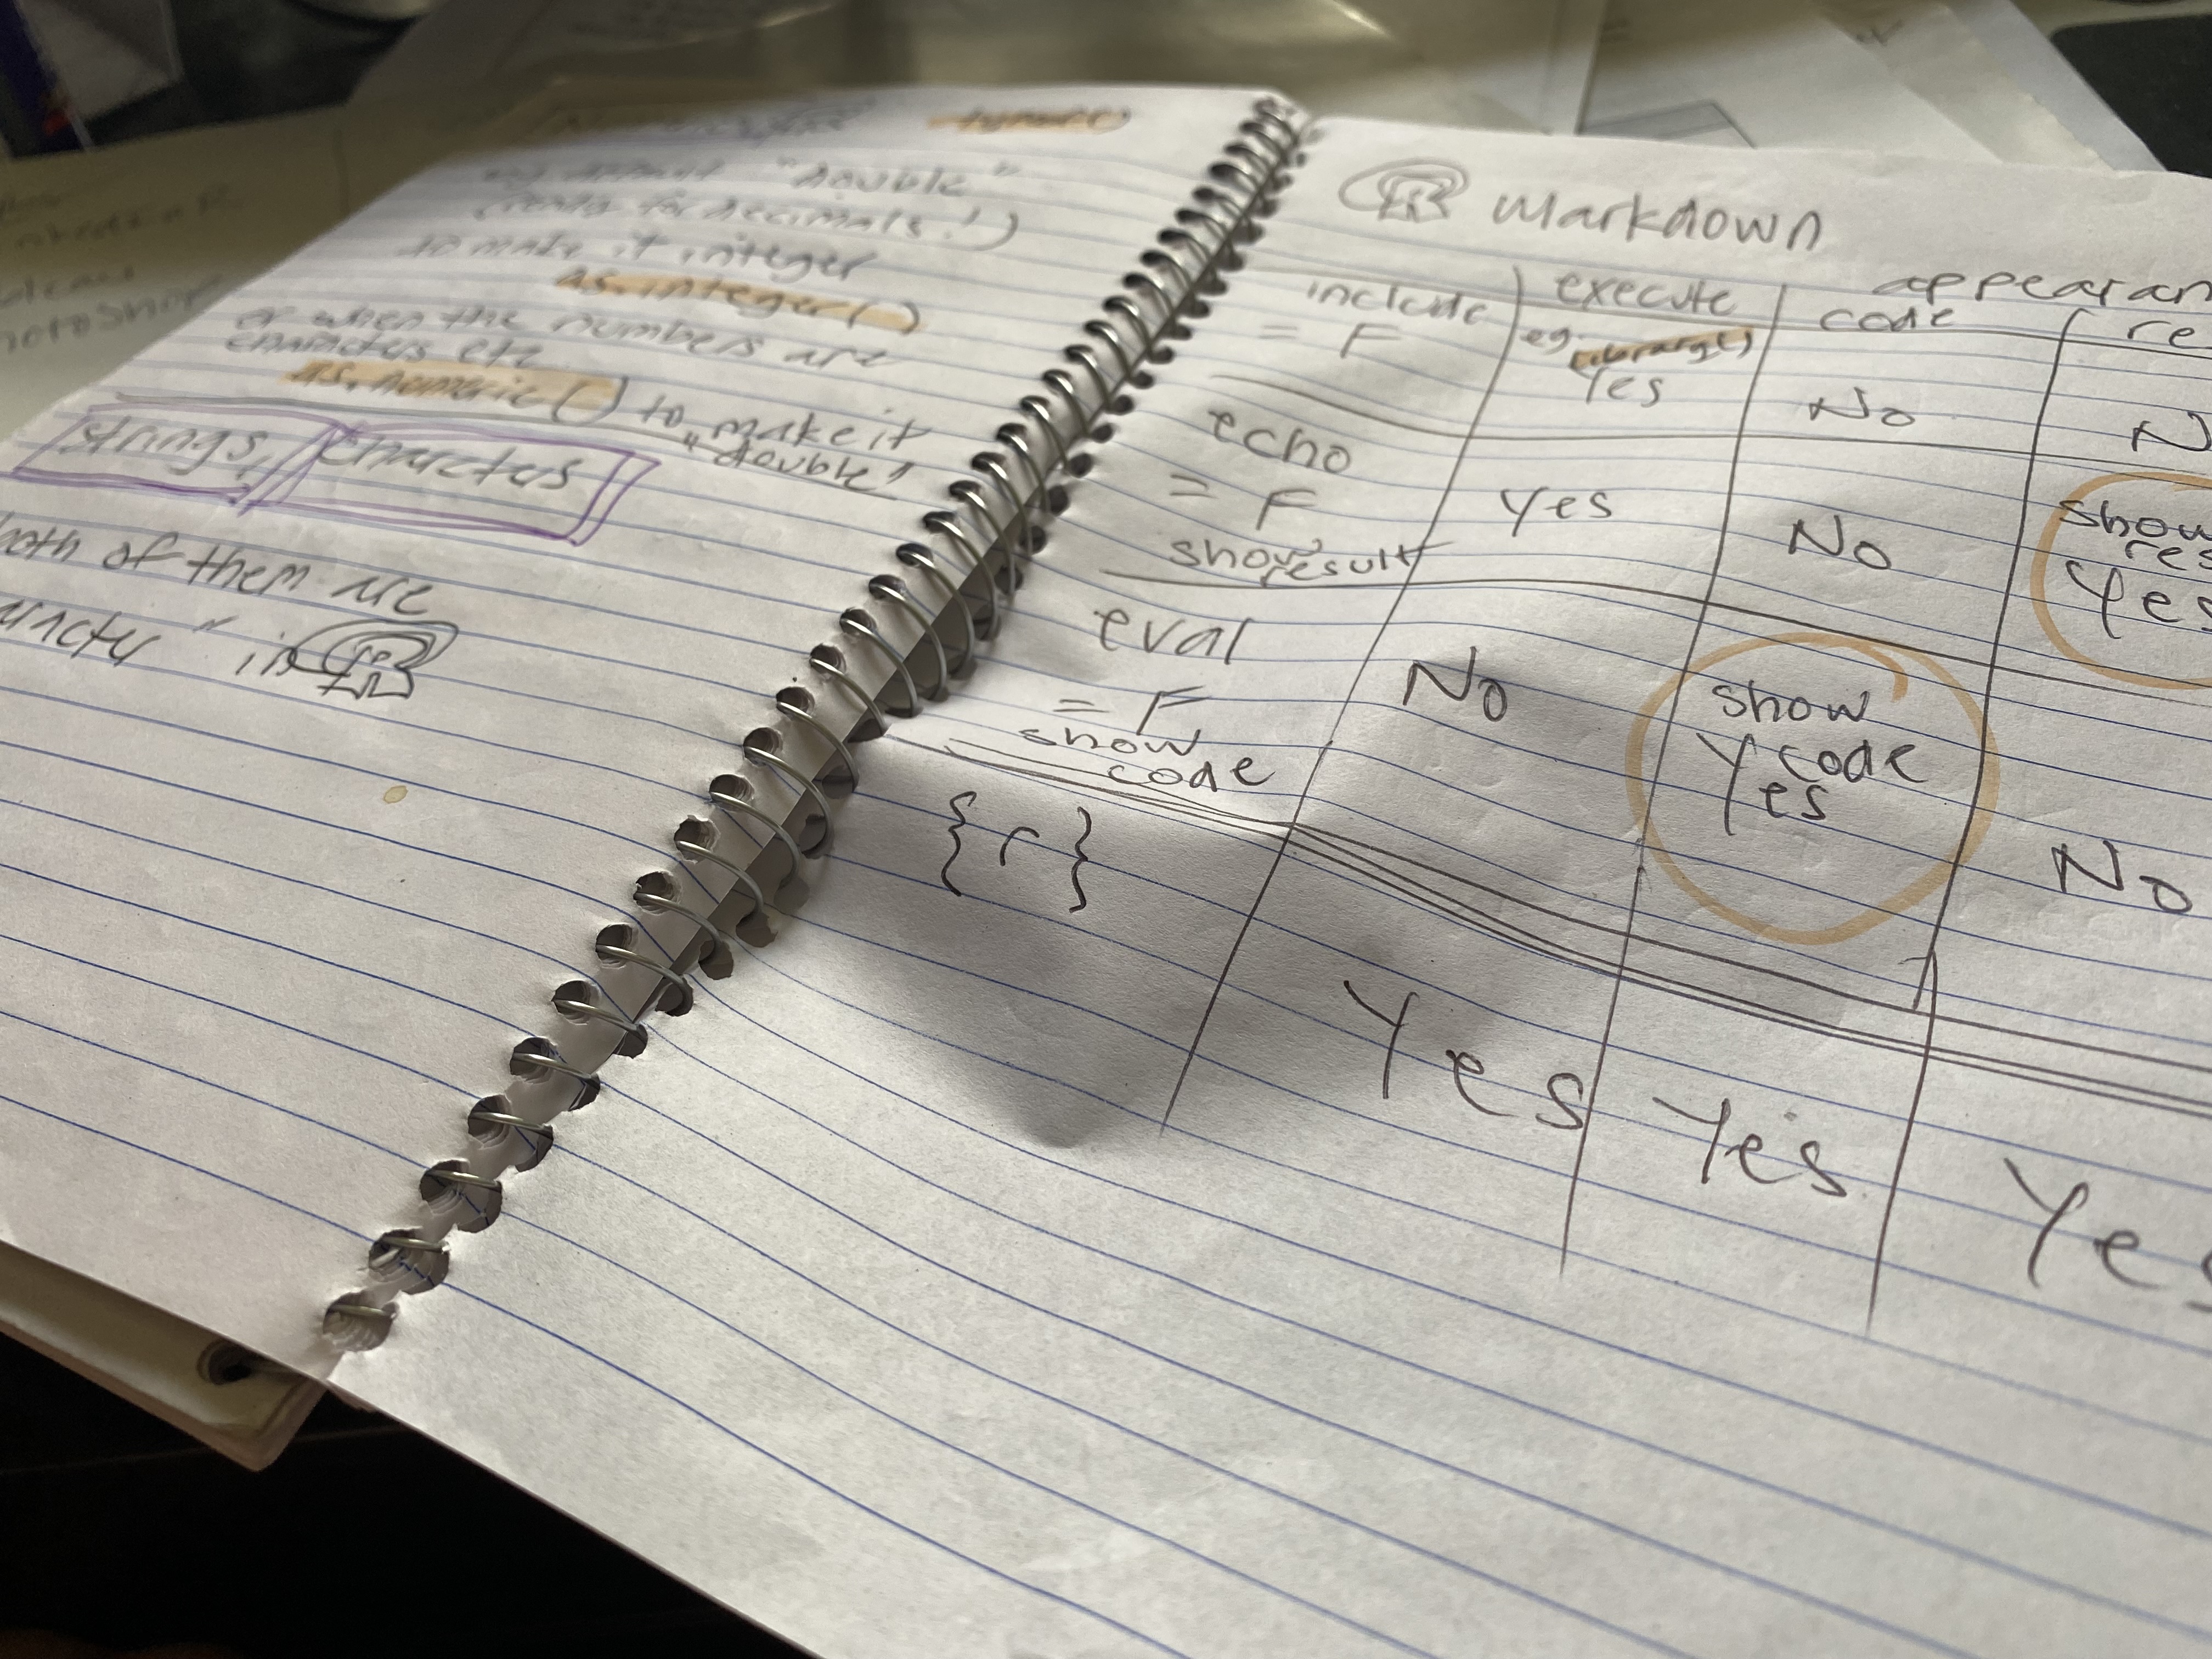 typeof()
"double"
(ready for decimals!)
to make it integer
as.integer()
or when the numbers are
character etc
as.numeric() to make it
"double"
strings, characters
both of them are
" in R
R Markdown
include
= F
execute
eg. library()
Yes
appearan
code
re
No
N
echo
= F
show result
Yes
No
show
res
Yes
eval
= F
show
code
No
show
code
Yes
No
{r}
Yes
Yes
Yes